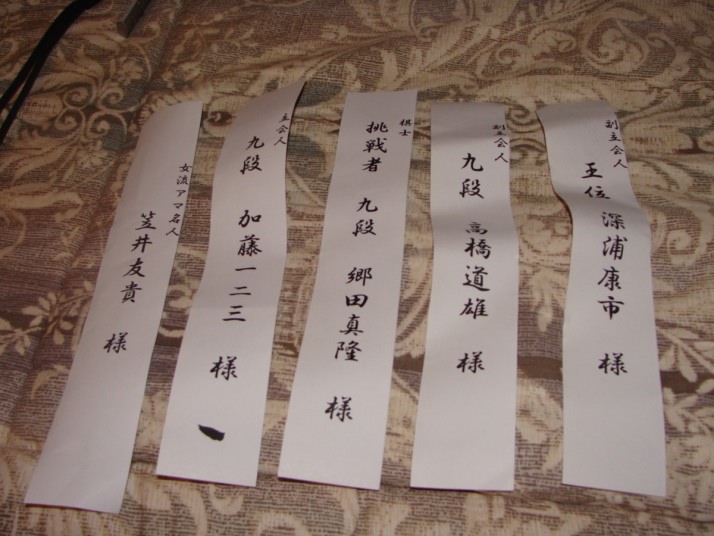 副立会人
王位 深浦康市 様
副立会人
九段 高橋道雄 様
棋士
挑戦者 九段 郷田真隆 様
立会人
九段 加藤一二三 様
女流アマ名人
笠井友貴 様